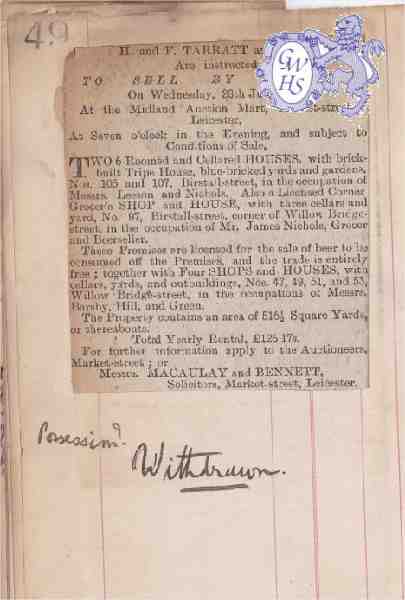 49
H. and F. TARRATT
Are instructed
TO SELL BY
On Wednesday, 28th
At the Midland Auction Mart,
Leicester,
At Seven o'clock in the Evening, and subject to
Conditions of Sale,
TWO 6 Roomed and Cellared HOUSES, with brick-
built Tripe House, blue-bricked yards and gardens,
Nos. 105 and 107, Birstall-street, in the occupation of
Messrs. Leeson and Nichols. Also a Licensed Corner
Grocer's SHOP and HOUSE, with three cellars and
yard, No. 97, Birstall-street, corner of Willow Bridge-
street, in the occupation of Mr. James Nichols, Grocer
and Beerseller.
These Premises are licensed for the sale of beer to be
consumed off the Premises, and the trade is entirely
free; together with Four SHOPS and HOUSES, with
cellars, yards, and outbuildings, Nos. 47, 49, 51, and 53,
Willow Bridge-street, in the occupations of Messrs.
Hill, and Green.
The Property contains an area of 816½ Square Yards,
or thereabouts.
Total Yearly Rental, £125 17s.
For further information apply to the Auctioneers,
Market-street; or
Messrs. MACAULAY and BENNETT,
Solicitors, Market-street, Leicester.
Possession?
Withdrawn.
GWHS